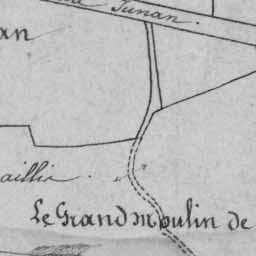 Junan.
an
aillie.
Le Grand moulin de